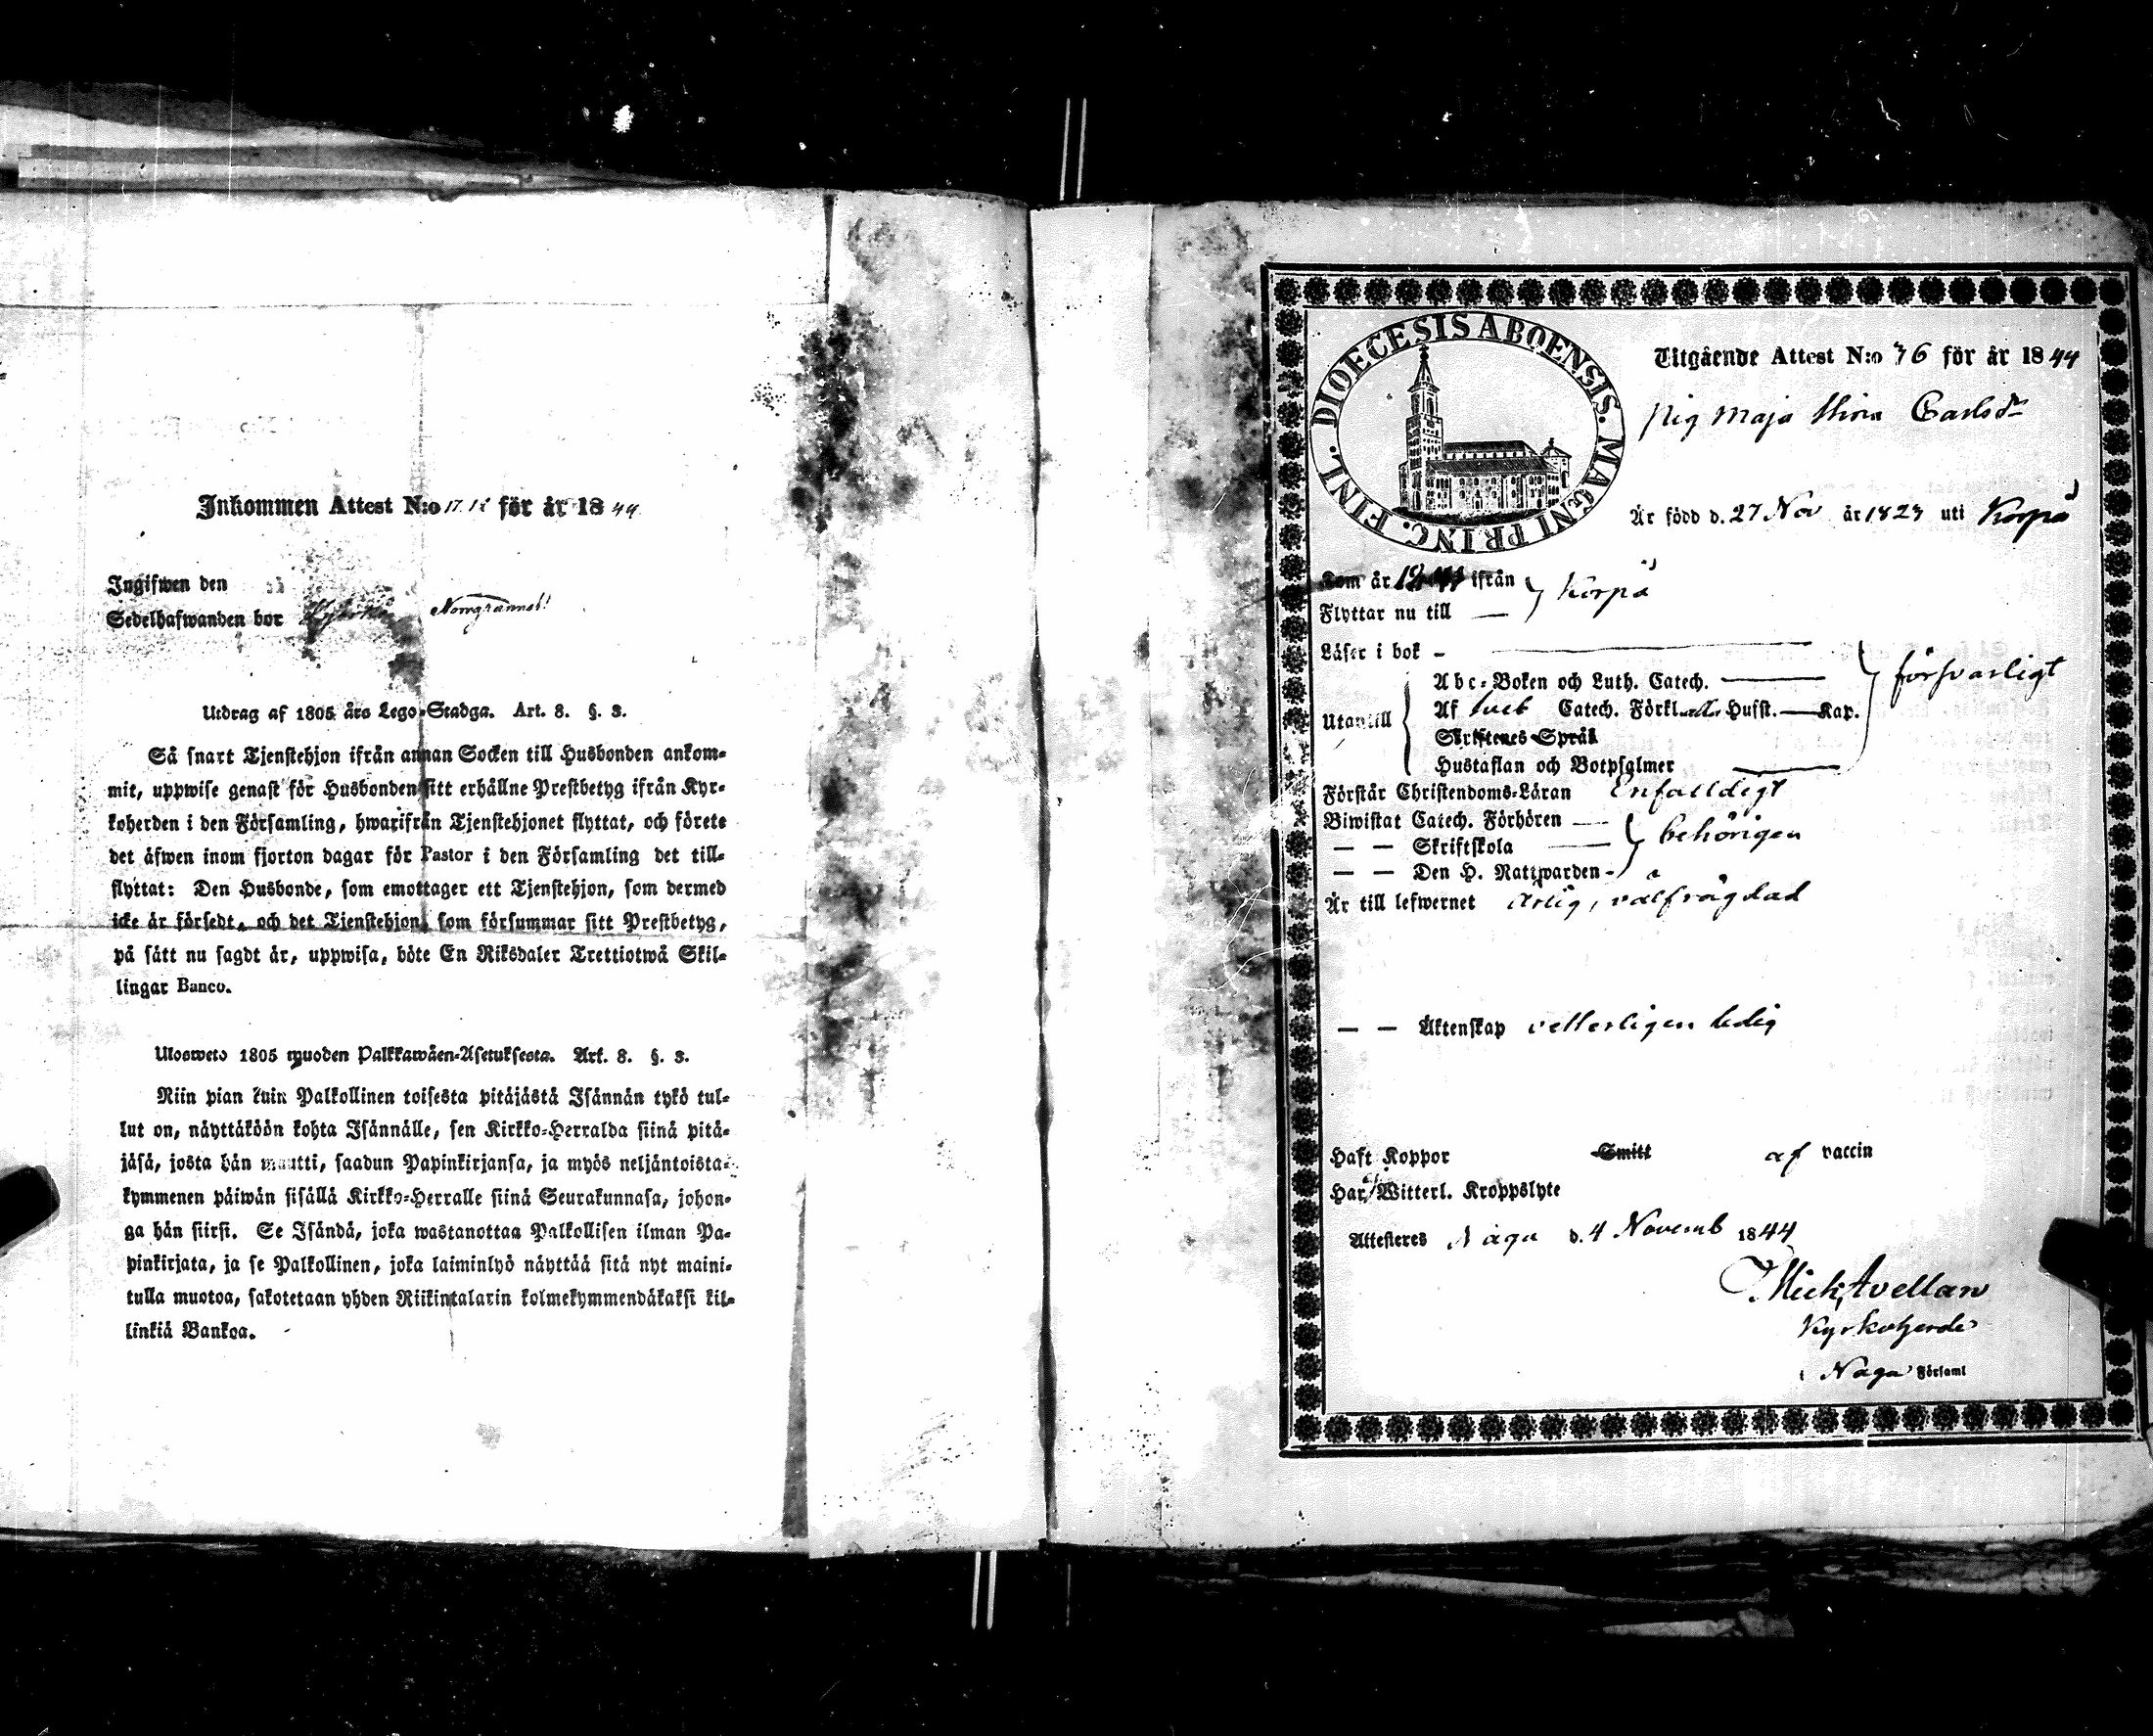 Inkommen Attest N:o för år 1844
Ingifwen den
Sedelhafwanden bor
Utdrag af 1805 års Lego-Stadga. Art. 8. §. 3.
Så snart Tjenstehjon ifrån annan Socken till Husbonden ankom-
mit, uppwise genast för Husbonden sitt erhållne Prestbetyg ifrån Kyr-
koherden i den Församling, hwarifrån Tjenstehjonet flyttat, och förete
det äfwen inom fjorton dagar för Pastor i den Församling det till-
flyttat: Den Husbonde, som emottager ett Tjenstehjon, som dermed
icke är försedt, och det Tjenstehjon, som försummar sitt Prestbetyg,
på sätt nu sagdt är, uppwisa, böte En Riksdaler Trettiotwå Skil-
lingar Banco.
Ulosweto 1805 wuoden Palkkawäen-Asetuksesta. Art. 8. §. 3.
Niin pian kuin Palkollinen toisesta pitäjästä Isännän tykö tul-
lut on, näyttäköön kohta Isännälle, sen Kirkko-Herralda siinä pitä-
jäsä, josta hän muutti, saadun Papinkirjansa, ja myös neljäntoista-
kymmenen päiwän sisällä Kirkko-Herralle siinä Seurakunnasa, johon-
ga hän siirsi. Se Isändä, joka wastanottaa Palkollisen ilman Pa-
pinkirjata, ja se Palkollinen, joka laiminlyö näyttää sitä nyt maini-
tulla muotoa, sakotetaan yhden Riikintalarin kolmekymmendäkaksi kil-
linkiä Bankoa.
DIOECESIS ABOENSIS. MAGNI PRINC. FINL.
Utgående Attest N:o 76 för år 1844
Pig Maja Stina Carlsdr
Är född d. 27 Nov år 1823 uti Korpo
Kom år 1844 ifrån
Flyttar nu till Korpo
Läser i bok
Abc-Boken och Luth. Catech.
försvarligt
Utantill
Af Catech. Förkl. Husst. Kap.
Skriftenes Språk
Hustaflan och Botpsalmer
Förstår Christendoms-Läran Enfalldigt
Biwistat Catech. Förhören
— — Skriftskola behörigen
— — Den H. Nattwarden
Är till lefwernet ärlig, välfrägdad
— — Äktenskap vetterligen ledig
Haft Koppor Smitt af vaccin
Har Witterl. Kroppslyte
Attesteres Nagu d. 4 Novemb 1844
Mich. Avellan
Kyrkoherde
i Nagu Församl